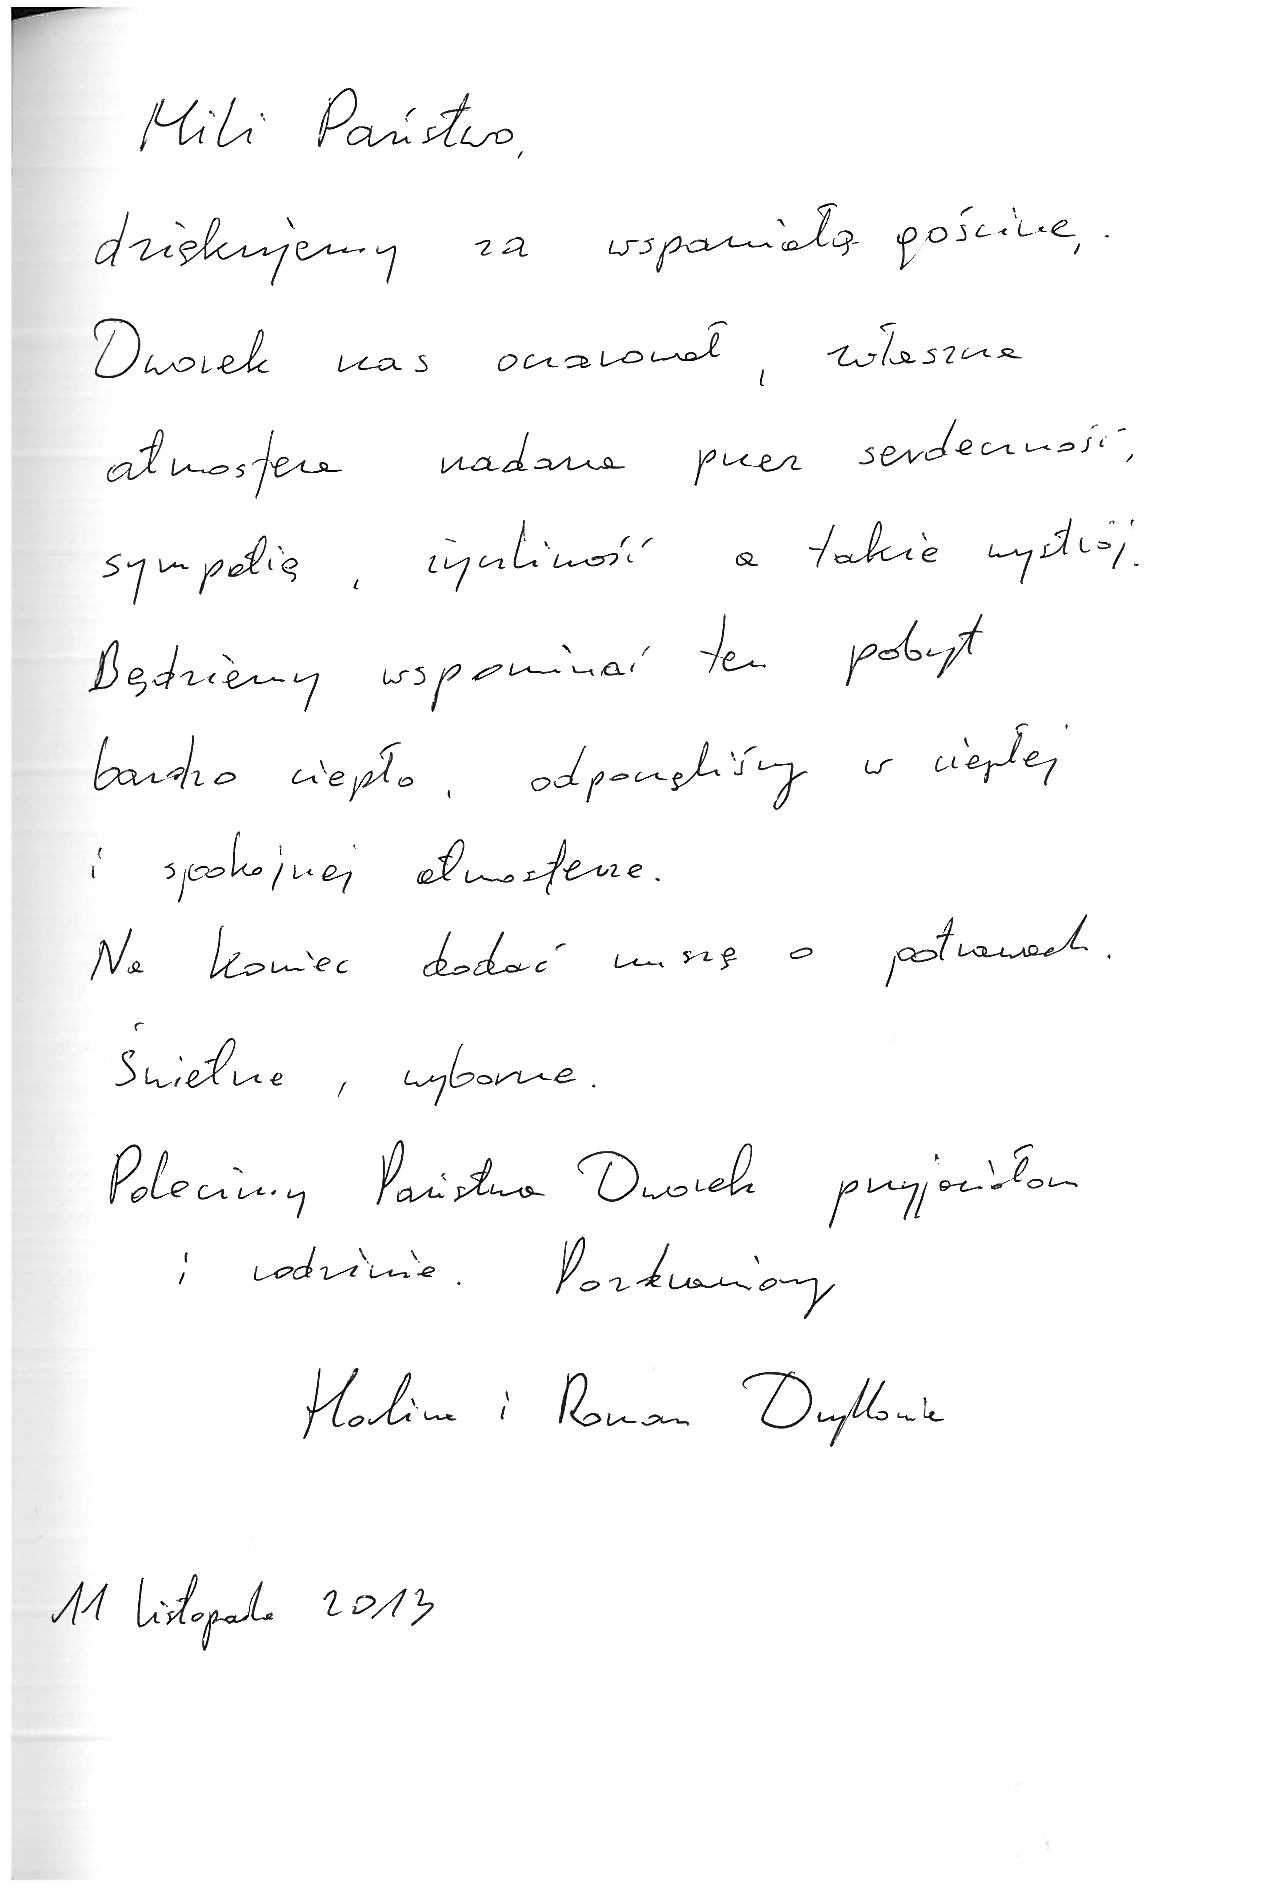 Mili Państwo,
dziękujemy za wspaniałą gościnę.
Dworek nas oczarował, zwłaszcza
atmosfera nadana przez serdeczność,
sympatię, życzliwość a także wystrój.
Będziemy wspominać ten pobyt
bardzo ciepło, odpoczęliśmy w ciepłej
i spokojnej atmosferze.
Na koniec dodać muszę o potrawach.
Świetne, wyborne.
Polecimy Państwa Dworek przyjaciołom
i rodzinie. Pozdrawiamy
Halina i Roman
11 listopada 2013